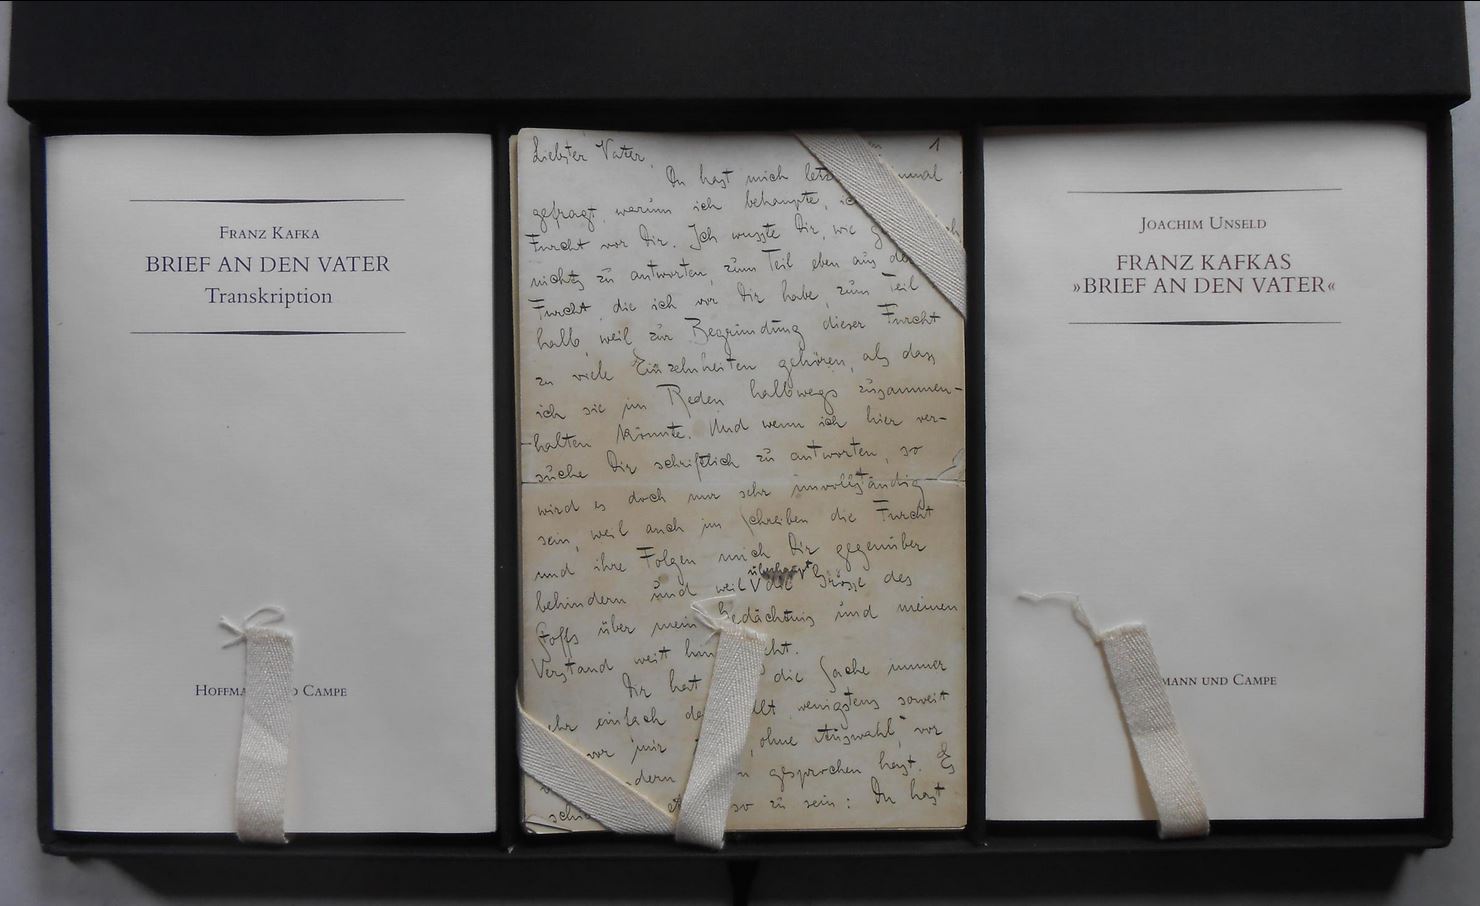 FRANZ KAFKA
BRIEF AN DEN VATER
Transkription
HOFFMA D CAMPE
1
Liebster Vater,
Du hast mich letz nmal
gefragt, warum ich behaupte, ic
Furcht vor Dir. Ich wusste Dir, wie g
nichts zu antworten, zum Teil eben aus de
Furcht, die ich vor Dir habe, zum Teil
halb weil zur Begründung dieser Furcht
zu viele Einzelnheiten gehören, als dass
ich sie im Reden halbwegs zusammen-
halten könnte. Und wenn ich hier ver-
suche Dir schriftlich zu antworten, so
wird es doch nur sehr unvollständig
sein, weil auch im Schreiben die Furcht
und ihre Folgen mich Dir gegenüber
behindern und weil überhaupt die Grösse des
Stoffs über mein Gedächtnis und meinen
Verstand weit hin cht.
Dir hat die Sache immer
ehr einfach wenigstens soweit
vor mir ohne Auswahl, vor
dern gesprochen hast. Es
schi so zu sein: Du hast
JOACHIM UNSELD
FRANZ KAFKAS
»BRIEF AN DEN VATER«
MANN UND CAMPE